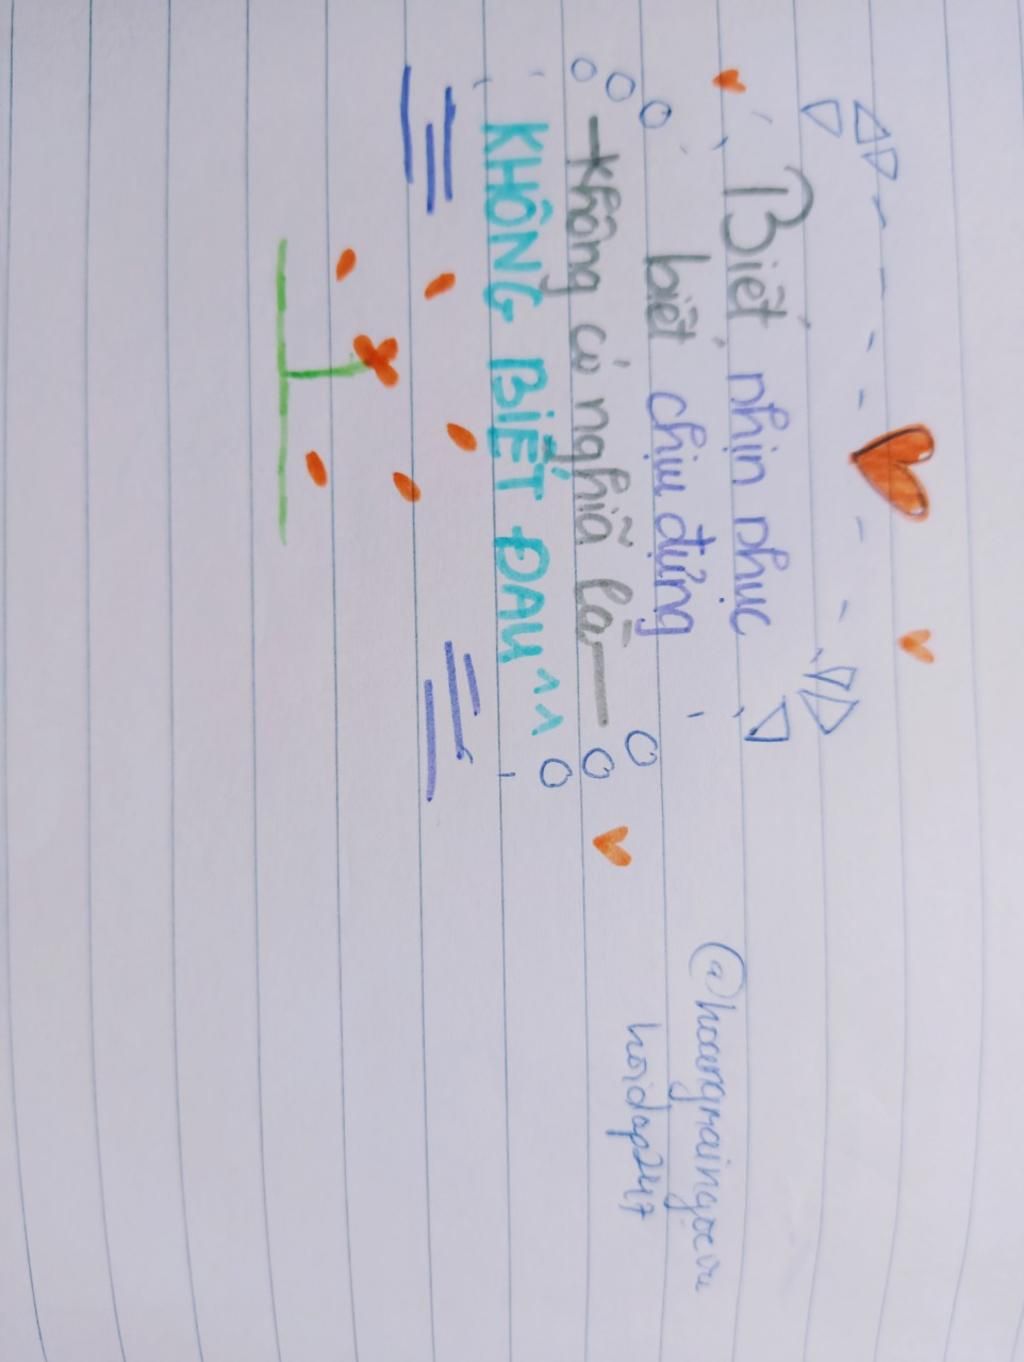 Biết nhịn nhục
biết chịu đựng
Không có nghĩa là
KHÔNG BIẾT ĐAU ^^
@hoangmaingocvu
hoidap247